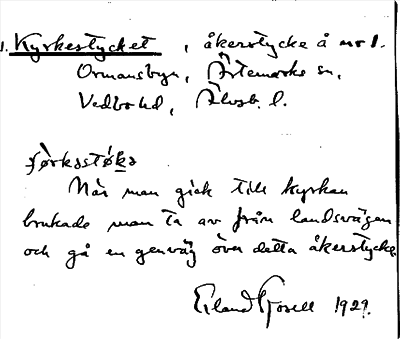 1. Kyrkestycket, åkerstycke å nr 1.
Ormansbyn, Årtemarks sn,
Vedbo hd, Älvsb. l.
När man gick till kyrkan
brukade man ta av från landsvägen
och gå en genväg över detta åkerstycke.
Erland Hjosell 1929.